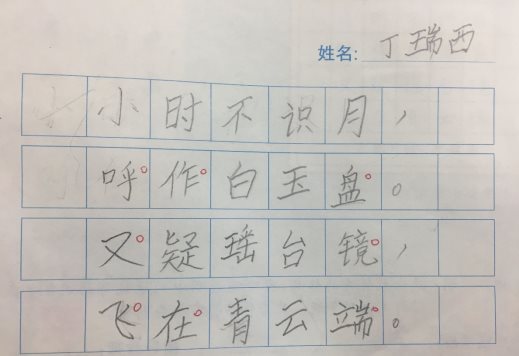 姓名: 丁瑞西
小时不识月，
呼作白玉盘。
又疑瑶台镜，
飞在青云端。